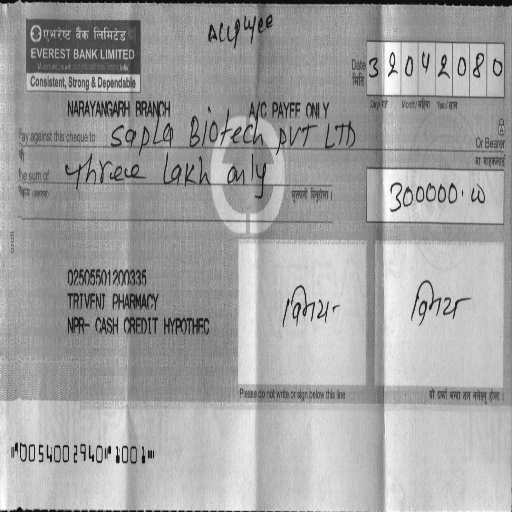 A/C payee
एभरेष्ट बैंक लिमिटेड
EVEREST BANK LIMITED
Consistent, Strong & Dependable
Date
मिति
3 2 0 4 2 0 8 0
Day/गते Month/महिना Year/साल
NARAYANGARH BRANCH A/C PAYEE ONLY
Pay against this cheque to Sapla Biotech PVT LTD
Or Bearer
वा वाहकलाई
the sum of Three lakh only
300000.00
02505501200335
TRIVENI PHARMACY
NPR- CASH CREDIT HYPOTHEC
Please do not write or sign below this line
⑈0054002940⑈ 1001⑈